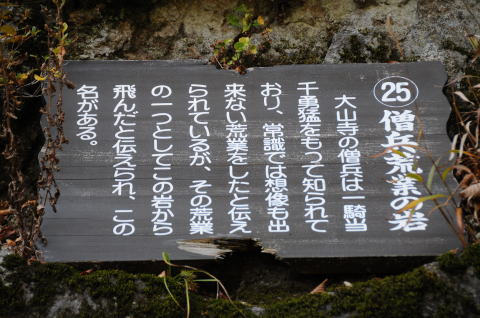 ㉕ 僧兵荒業の岩
大山寺の僧兵は一騎当
千勇猛をもって知られて
おり、常識では想像も出
来ない荒業をしたと伝え
られているが、その荒業
の一つとしてこの岩から
飛んだと伝えられ、この
名がある。